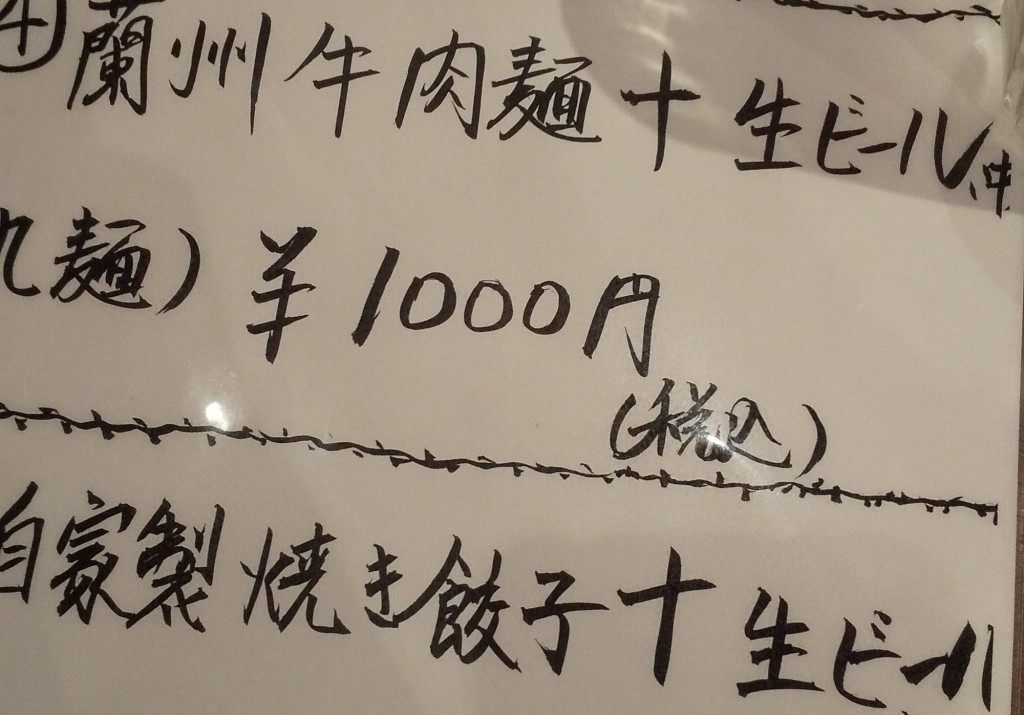 ④蘭州牛肉麺＋生ビール(中
麺）￥1000円
（税込）
自家製焼き餃子＋生ビール